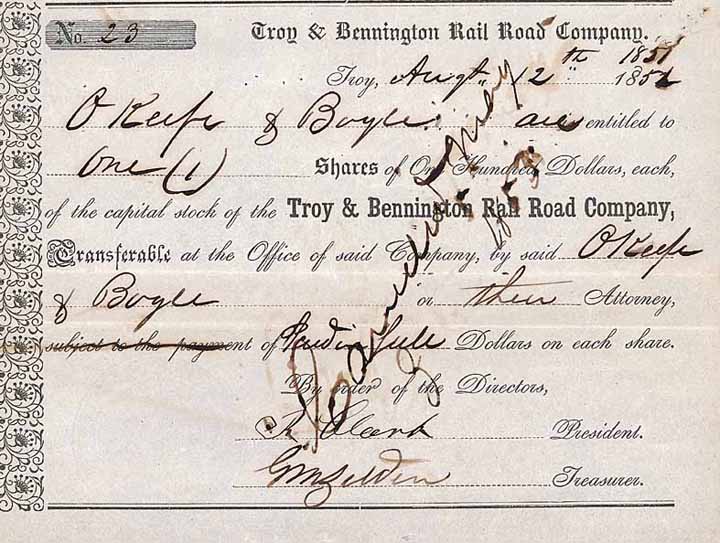 No. 23
Troy & Bennington Rail Road Company.
1851
Troy, Augt. 12th 185
O Keefe & Boyle are entitled to
One (1) Shares of One Hundred Dollars, each,
of the capital stock of the Troy & Bennington Rail Road Company,
Transferable at the Office of said Company, by said O Keefe
& Boyle or their Attorney,
subject to the payment of Paid in full Dollars on each share.
By order of the Directors,
Clark President.
Treasurer.